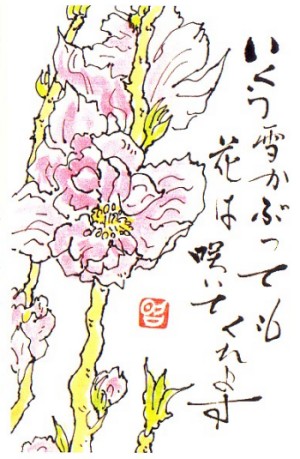 いくら雪かぶっても
花は咲いてくれます